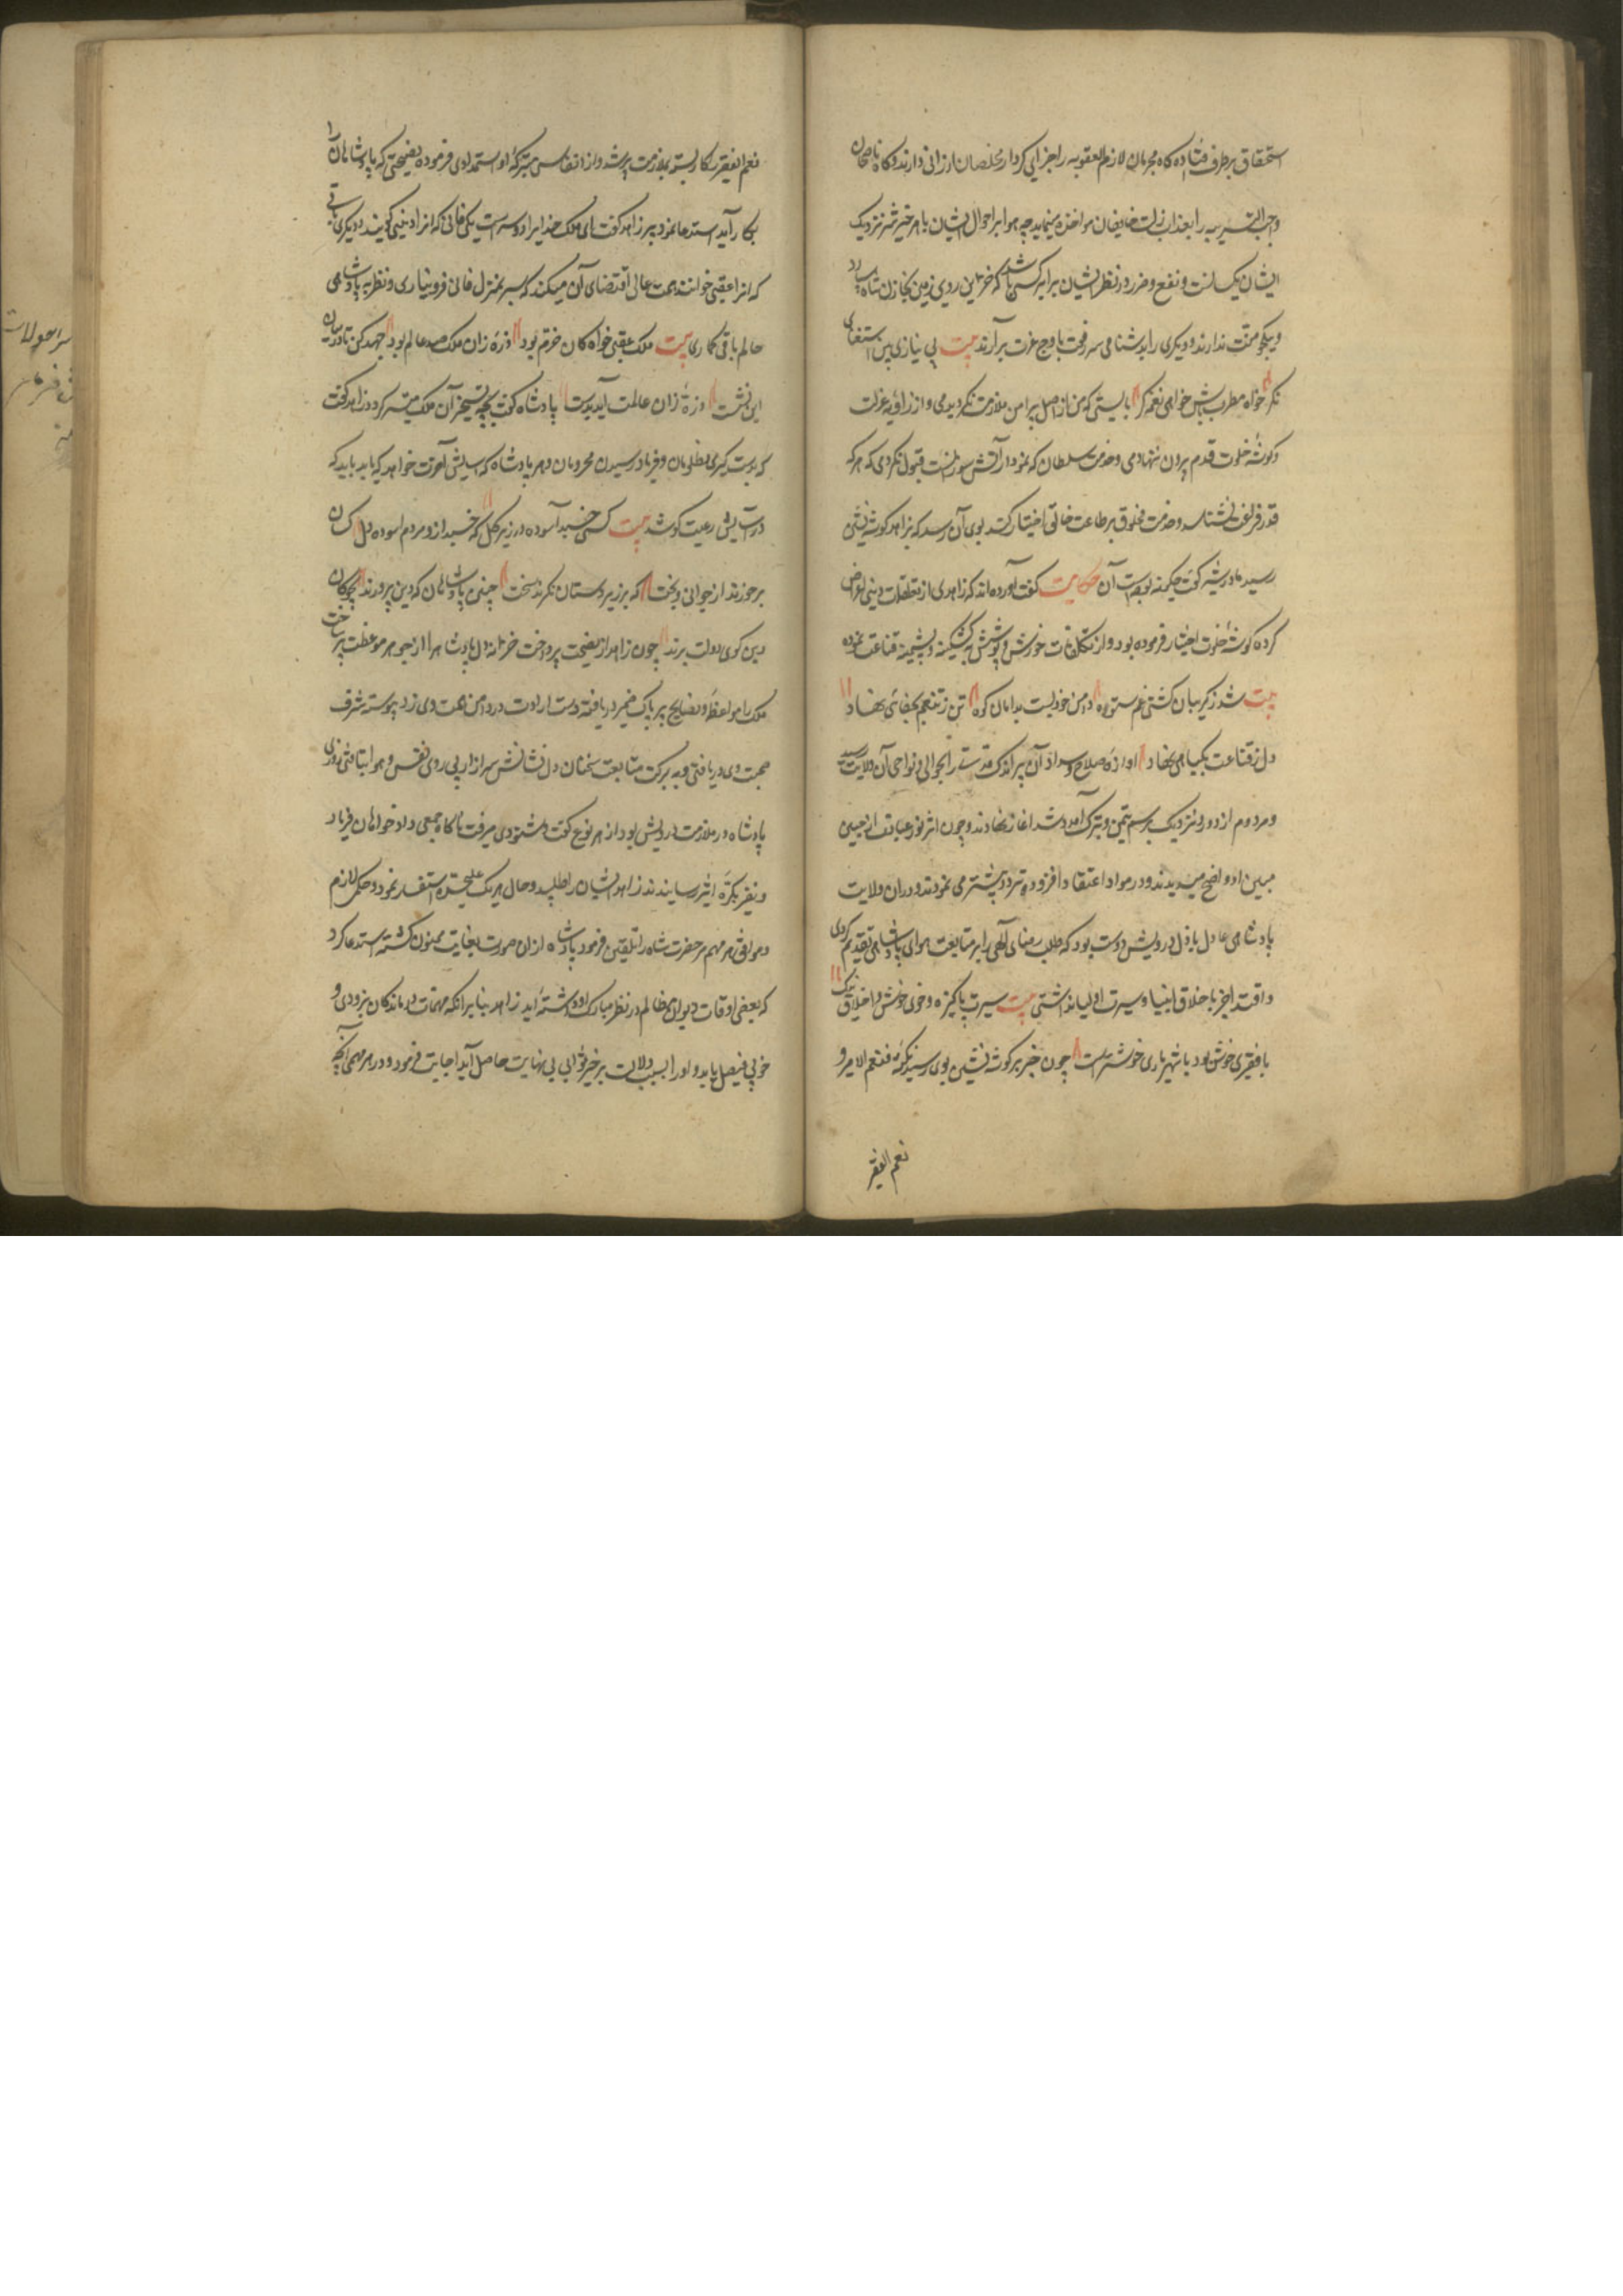 استحقاق بر طرف افتاده گاه مجرمان لازم العقوبه را جزای کردار مخلصان ارزانی دارند و گاه ناصحان
واجب التربیه را بعذاب زلت خایفان مواخذه نماید چه هوا بر احوال ایشان با هر خیر و شر نزدیک
ایشان یکسانست و نفع و ضرر در نظر ایشان برابر کسی باشد که خزاین روی زمین بخازن شاه سپارد
و بیک جو منت ندارند و دیگری را بدشنامی سر رفعت باوج عزت برآرند بیت بی نیازی بین استغنای
نگر خواه مطرب باش خواهی نغمه گر بایستی که من از اصل پیرامن ملازمت نگردیدمی و از زاویه عزلت
و گوشه خلوت قدم بیرون ننهادمی و خدمت سلطان که نمودار آتش سوزانست قبول نکردمی که هر که
قدر فراغت نشناسد و خدمت مخلوق بر طاعت خالق اختیار کند بوی آن رسد که بزاهد گوشه نشین
رسید مادر شیر گفت چگونه بودست آن حکایت گفت آورده اند که زاهدی از تعلقات دنیی اعراض
کرده گوشه خلوت اختیار فرموده بود و از تکلفات خورش و پوشش بکشکینه و پشمینه قناعت نموده
بیت شد ز گریبان کشتی غم ستوه دامن خود بست بدامان کوه تن ز تنعم بجفائی نهاد
دل ز قناعت بگیاهی نهاد آوازه صلاح و سداد آن پیر اندک مدت را بحوالی و نواحی آن ولایت رسید
و مردم از دور و نزدیک برسم تیمن و تبرک آمد و شد آغاز نهادند و چون اثر نور عبادت از جبین
مبین او واضح میدیدند و در مواد اعتقاد افزوده تردد بیشتر می نمودند و در آن ولایت
پادشاهی عادل باذل درویش دوست بود که طلب رضای الهی را بر متابعت هوای پادشاهی تقدیم کردی
و اقتدا جز باخلاق انبیا و سیرت اولیا نداشتی بیت سیرت پاکیزه و خوی خوش و اخلاق نیک
با فقیری خوش بود با شهریاری خوشترست چون خبر پیر گوشه نشین بوی رسید نکته فنعم الامیر و
نعم الفقیر
نعم الفقیر را کار بسته بملازمت پیر شد و از انفاس متبرکه او استمدادی فرموده نصیحتی که پادشاهان را
بکار آید استدعا نمود پیر زاهد گفت ای ملک خدایرا دو سراست یکی فانی که آنرا دنیی گویند و دیگری باقی
که آنرا عقبی خوانند همت عالی اقتضای آن میکند که سر بمنزل فانی فرو نیاری و نظر به پادشاهی
عالم باقی گماری بیت ملک عقبی خواه کان خرم بود ذره زان ملک صد عالم بود جهد کن تا در میان
این نشست ذره زان عالمت آید بدست پادشاه گفت بچه تسخیر آن ملک میسر گردد زاهد گفت
که بدستگیری مظلومان و فریاد رسیدن محرومان و هر پادشاه که آسایش آخرت خواهد که یابد باید که
در آسایش رعیت کوشد بیت کسی خسبد آسوده در زیر گل که خسبد از و مردم آسوده دل کسان
برخورند از جوانی و بخت که بر زیردستان نگیرند سخت چنین پادشاهان که دین پرورند بچوگان
دین گوی دولت برند چون زاهد از نصیحت پرداخت خزانه دل پادشاه را از جوهر موعظت پر ساخت
ملک را مواعظ و نصایح پیر پاک ضمیر دریافته دست ارادت در دامن همت وی زد پیوسته شرف
صحبت وی دریافتی و به برکت متابعت سخنان دل نشانش سر از پی روی نفس و هوا بتافتی روزی
پادشاه در ملازمت درویش بود از هر نوع گفت و شنودی میرفت ناگاه جمعی دادخواهان فریاد
و نفیر بکره اثیر رسانیدند زاهد ایشان را طلبید و حال هر یک علیحده استفسار نمود و حکمی لازم
و موافق هر مهم مر حضرت شاه را تلقین فرمود پادشاه ازان صورت بغایت ممنون گشته استدعا کرد
که بعضی اوقات دیوان مظالم در نظر مبارک او داشته آید زاهد بنا بر آنکه مهمات درماندگان بزودی و
خوبی فیصل یابد و او را بسبب دلالت بر خیر ثوابی بی نهایت حاصل آید اجابت فرمود و در هر مهمی آنچه